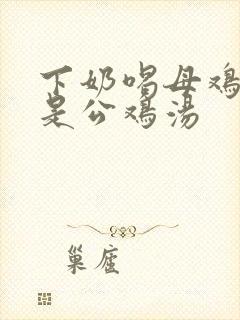 下奶喝母鸡
是公鸡汤
巢雇